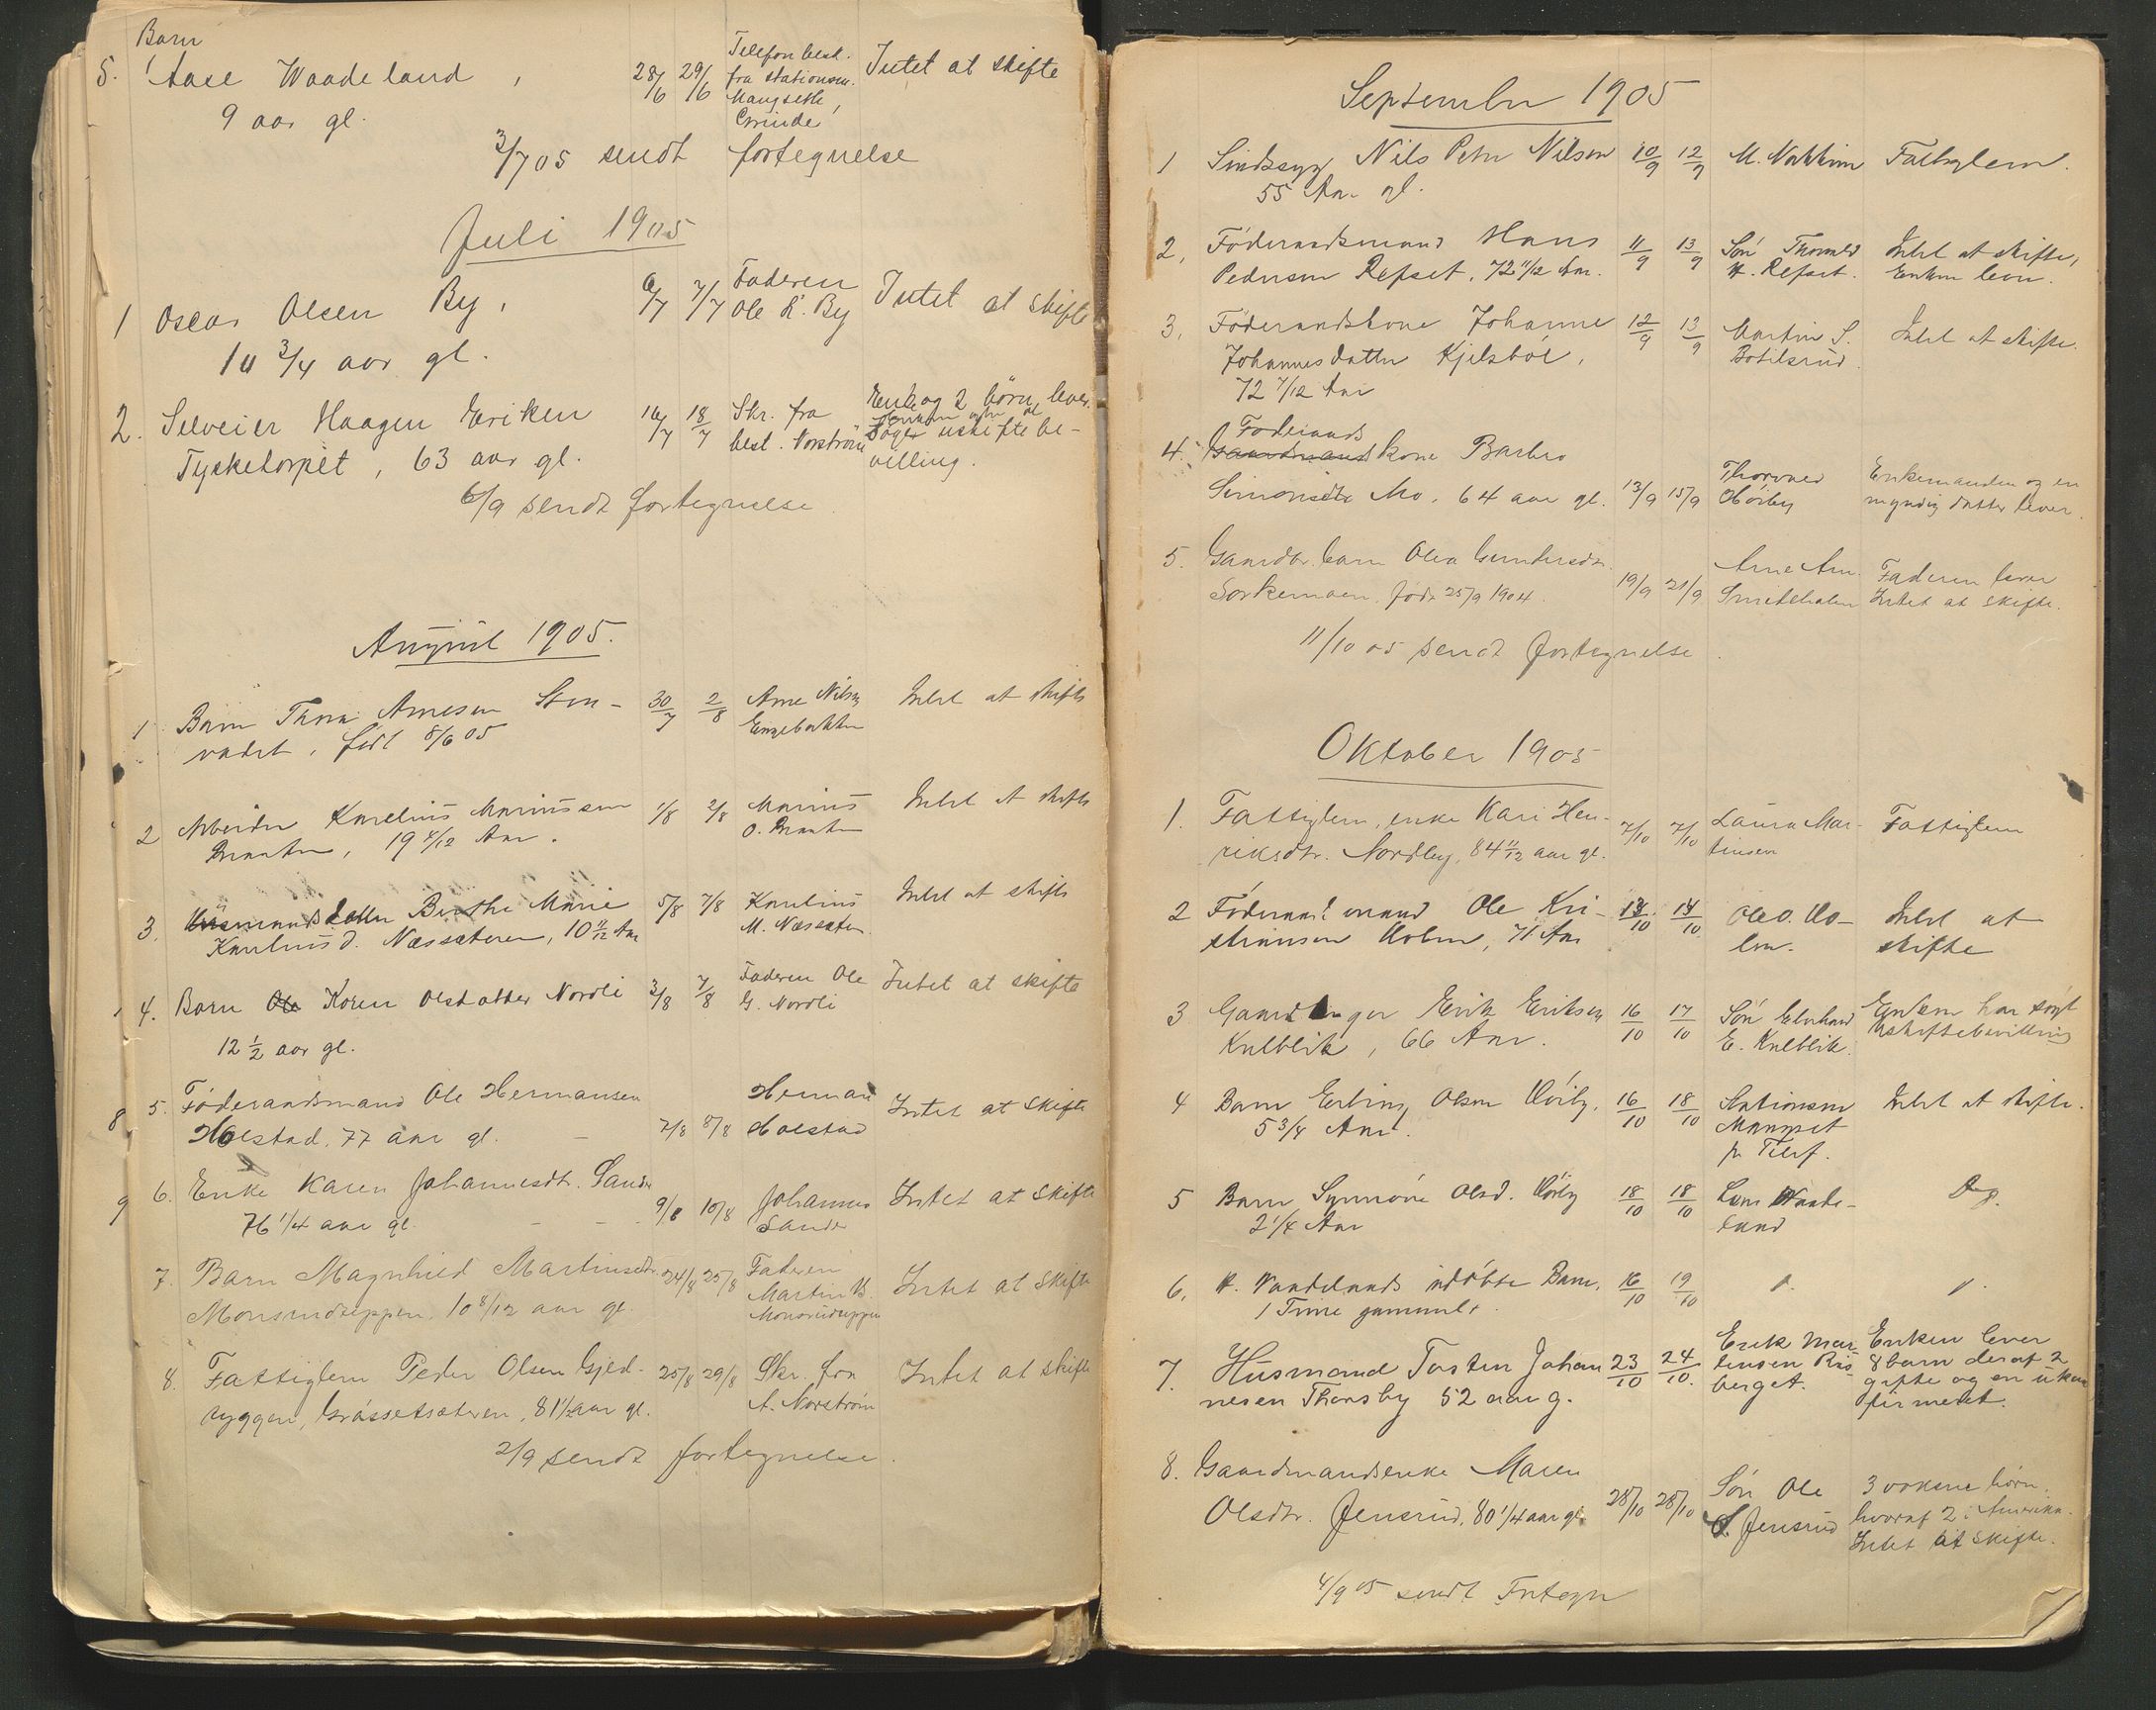 Barn
5. Aase Waadeland, 28/6 29/6 Telefon best. fra stationsm. Mangseth, Intet at skifte
9 aar gl.
3/7 05 sendt fortegnelse
Juli 1905
1 Oscar Olsen By, 6/7 7/7 Faderen Ole L. By Intet at skifte
10 3/4 aar gl.
2. Selveier Haagen Eriksen 16/7 18/7 Skr. fra best. Norström Enke og 2 börn lever.
Tysketorpet, 63 aar gl. söger uskiftebe-
villing.
6/9 sendt fortegnelse
August 1905.
1 Barn Thora Arnesen Sten- 30/7 2/8 Arne Nilsen Intet at skifte
vadet, födt 8/6 05 Engebakken
2 Arbeider Karelius Mariussen 1/8 2/8 Marius Intet at skifte
Braaten, 19 4/12 Aar. O. Braaten
3. Husmandsdatter Berthe Marie 5/8 7/8 Karelius Intet at skifte
Kareliusd. Næssæteren, 10 11/12 Aar M. Næssæter.
4. Barn Ole Koren Olsdatter Nordli 3/8 7/8 Faderen Ole Intet at skifte
12 1/2 aar gl. G. Nordli
8 5. Föderaadsmand Ole Hermansen Herman Intet at skifte
Holstad. 77 aar gl. 7/8 8/8 Holstad
9 6. Enke Karen Johannesdtr. Sander 9/8 10/8 Johannes Intet at skifte
76 1/4 aar gl. Sander
7. Barn Magnhild Martinsdtr. 24/8 25/8 Faderen Intet at skifte
Monsrudseppen, 10 8/12 aar gl. Martin B. Monsrudseppen
8. Fattiglem Peder Olsen Gjed- 25/8 29/8 Skr. fra Intet at skifte
ryggen, Gråssetsæteren, 81 1/2 aar gl. A. Norström
2/9 sendt fortegnelse.
September 1905
1 Sindssyg Nils Peter Nilsen 10/9 12/9 M. Fattiglem.
55 Aar gl.
2, Föderaadsmand Hans 11/9 13/9 Sön Thorvald Intet at skifte,
Pedersen Refset, 72 11/12 Aar. H. Refset. Enken lever.
3, Föderaadskone Johanne 12/9 13/9 Martin S. Intet at skifte.
Johannesdatter Kjelsböl, Botilsrud
72 7/12 Aar
Föderaads
4. Gaardmandskone Barbro Thorvald Enkemanden og en
Simonsdtr Mo. 64 aar gl. 13/9 15/9 Hörby myndig datter lever.
5. Gaardbr. barn Olea Guntersdtr. Arne Arn. Faderen lever
Sorkemoen. född 25/9 1904 19/9 21/9 Smedsholen Intet at skifte.
11/10 05 sendt fortegnelse
Oktober 1905
1. Fattiglem, enke Kari Hen- 7/10 7/10 Laura Mar- Fattiglem
riksdtr. Nordby, 84 11/12 aar gl. tinsen
2 Föderaadsmand Ole Kri- 13/10 14/10 Ole O. Ho- Intet at
stiansen Holm, 71 Aar lm. skifte
3 Gaardbruger Erik Eriksen 16/10 17/10 Sön Eberhard Enken har sögt
Kulblik, 66 Aar. E. Kulblik. Uskiftebevilling
4 Barn Erling Olsen Hörby. 16/10 18/10 Stationsm Intet at skifte.
5 3/4 Aar. Mangset
pr Telef.
5 Barn Synnöve Olsd. Hörby 18/10 18/10 Lars Waade- Do.
2 1/4 Aar land
6. H. Vandelunds udöbte Barn. 16/10 19/10 " "
1 Time gammelt.
7. Husmand Tosten Johan 23/10 24/10. Erik Mar- Enken lever
nesen Thorsby 52 aar g. tinsen Ris- 8 barn deraf 2
berget. gifte og en ukon
firmeret.
8. Gaardmandsenke Maren Sön Ole 3 voksne börn,
Olsdtr. Jensrud, 80 1/4 aar gl. 28/10 28/10 O. Jensrud hvoraf 2 i Amerika.
Intet at skifte.
4/9 05 sendt Fortegn